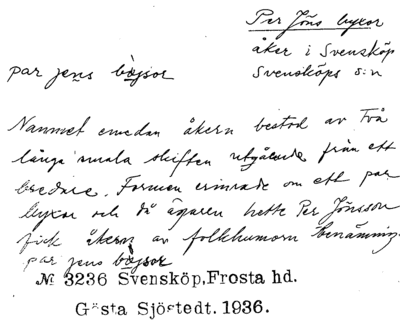 Per Jöns byxor
åker i Svensköp
par jens bøjsor Svensköps s:n
Namnet emedan åkern bestod av Två
långa smala skiften utgående från ett
bredare. Formen erinrade om ett par
byxor och då ägaren hette Per Jönsson
fick åkern av folkhumorn benämning
par jens bøjsor
№ 3236 Svensköp, Frosta hd.
Gösta Sjöstedt. 1936.